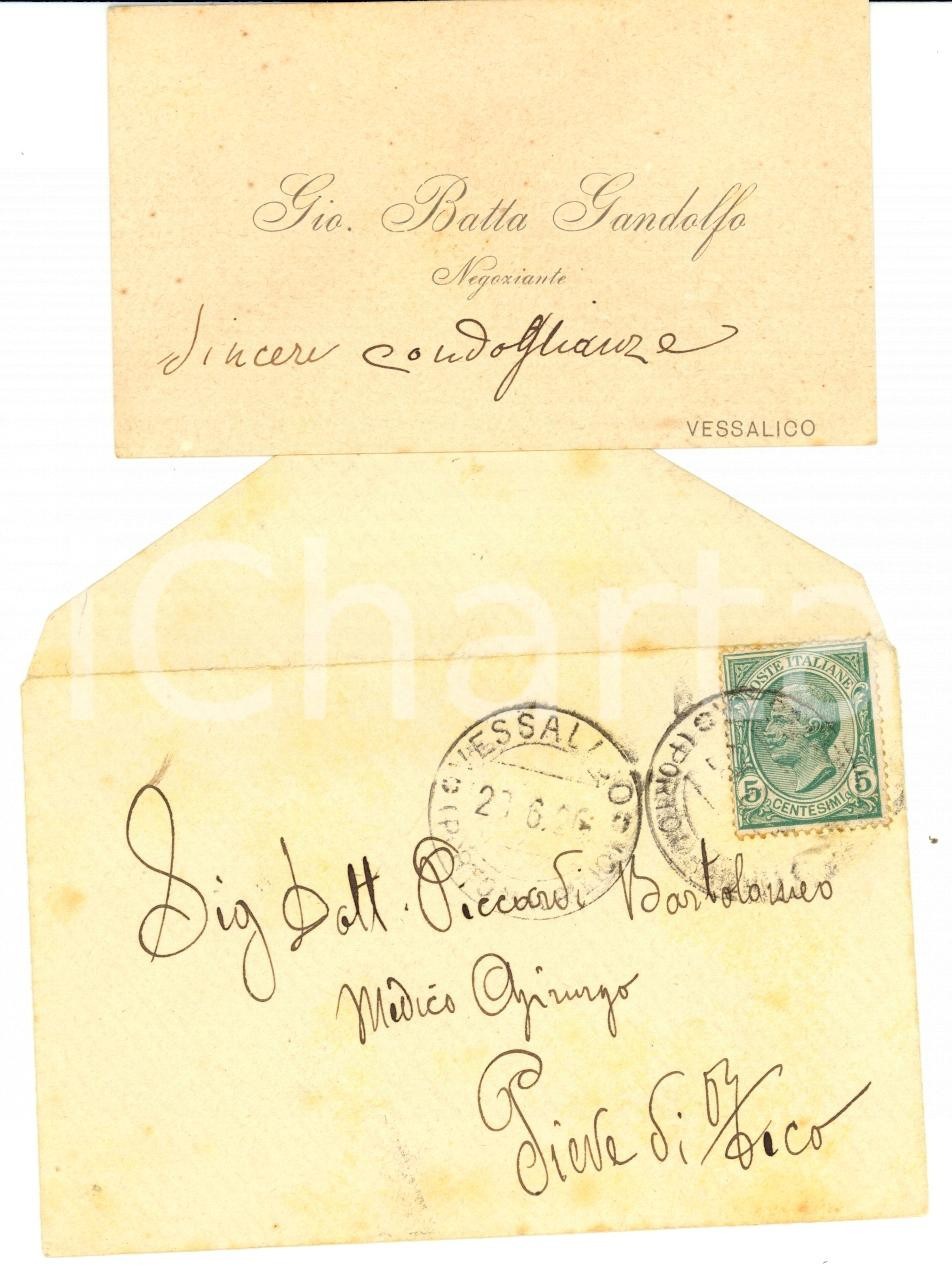 Gio. Batta Gandolfo
Negoziante
Sincere condoglianze
VESSALICO
iCharta
POSTE ITALIANE
5 5
CENTESIMI
VESSALICO
6.26
Sig Dott. Piccardi Bartolomeo
Medico Chirurgo
Pieve di Teco